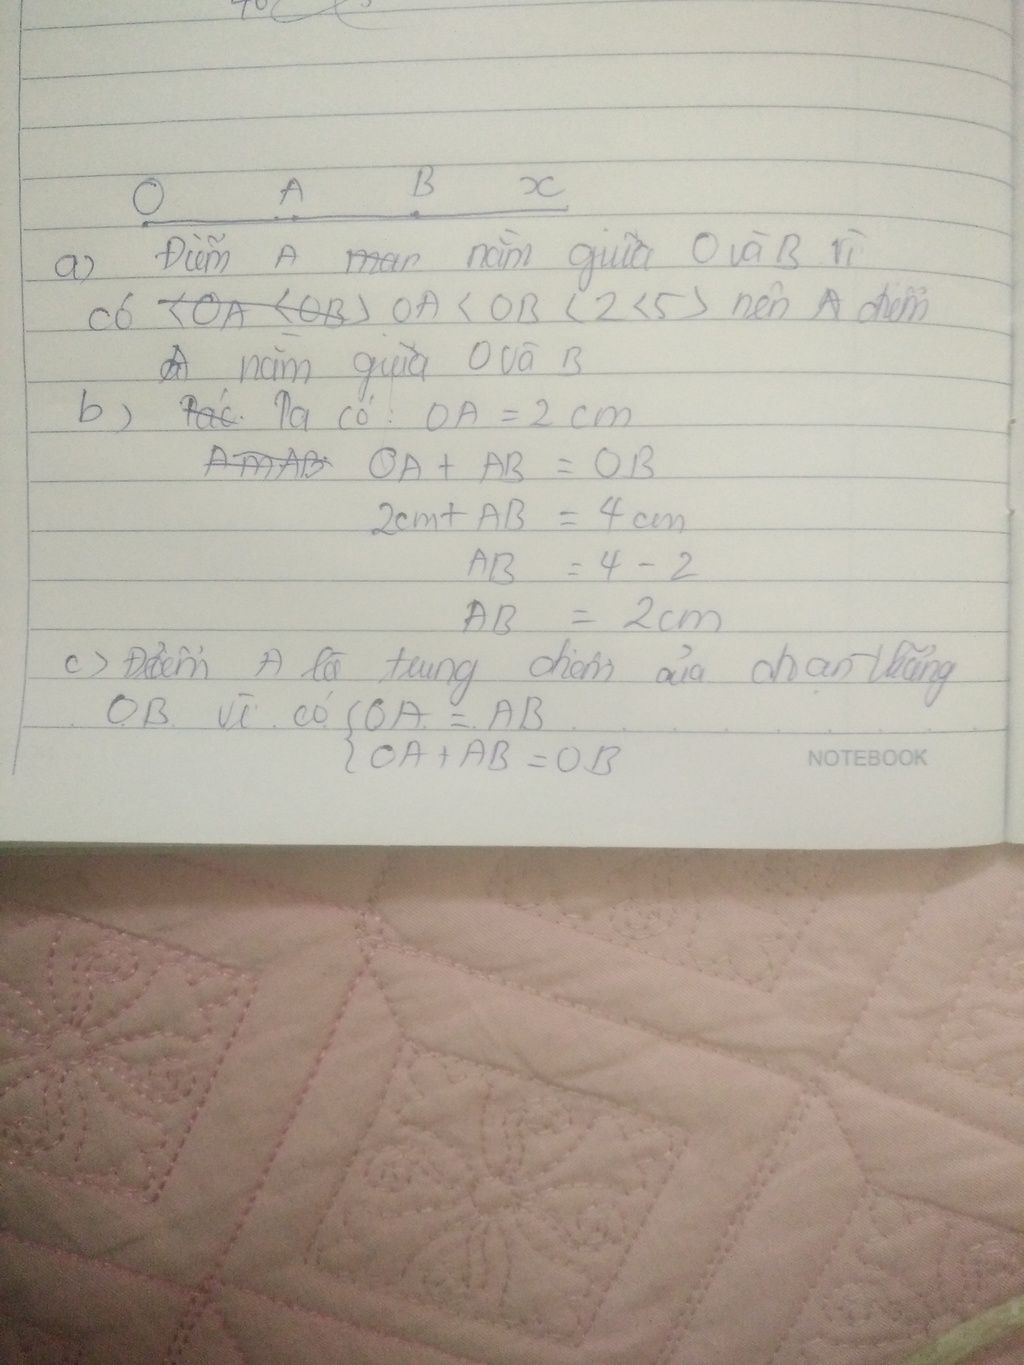 O A B x
a) Điểm A nằm giữa O và B vì
có <OA <OB> OA < OB <2<5> nên A điểm
A nằm giữa O và B
b) Ta có: OA = 2 cm
OA + AB = OB
2cm + AB = 4 cm
AB = 4 - 2
AB = 2 cm
c) Điểm A là trung điểm của đoạn thẳng
OB vì có {OA = AB
{OA + AB = OB
NOTEBOOK